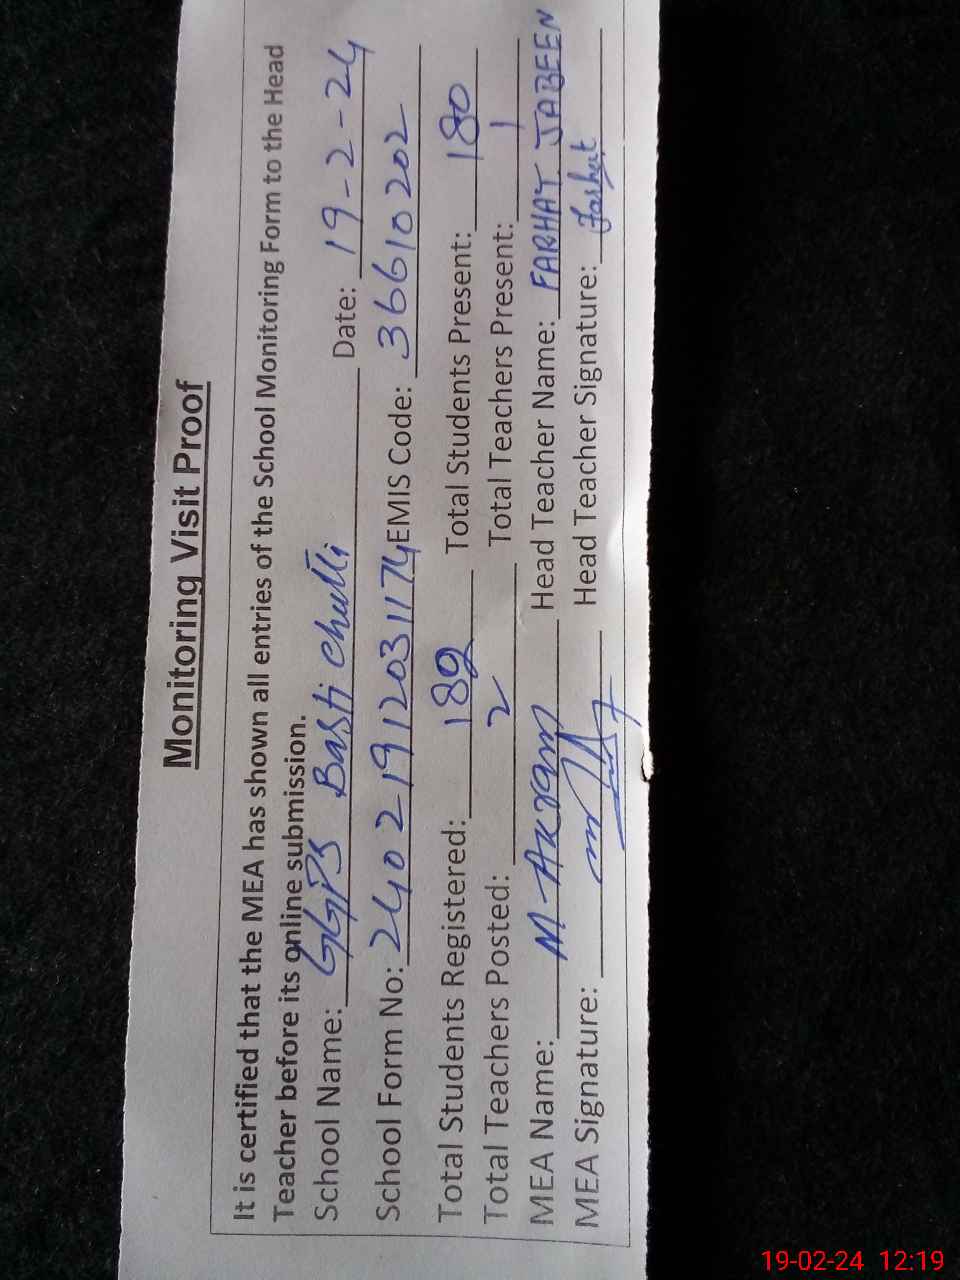 Monitoring Visit Proof
It is certified that the MEA has shown all entries of the School Monitoring Form to the Head
Teacher before its online submission.
School Name: GGPS Basti Chulli Date: 19-2-24
School Form No: 240219120311 74 EMIS Code: 36610202
Total Students Registered: 182 Total Students Present: 180
Total Teachers Posted: 2 Total Teachers Present: 1
MEA Name: M-Akram Head Teacher Name: FARHAT JABEEN
MEA Signature: Head Teacher Signature: Farhat
19-02-24 12:19